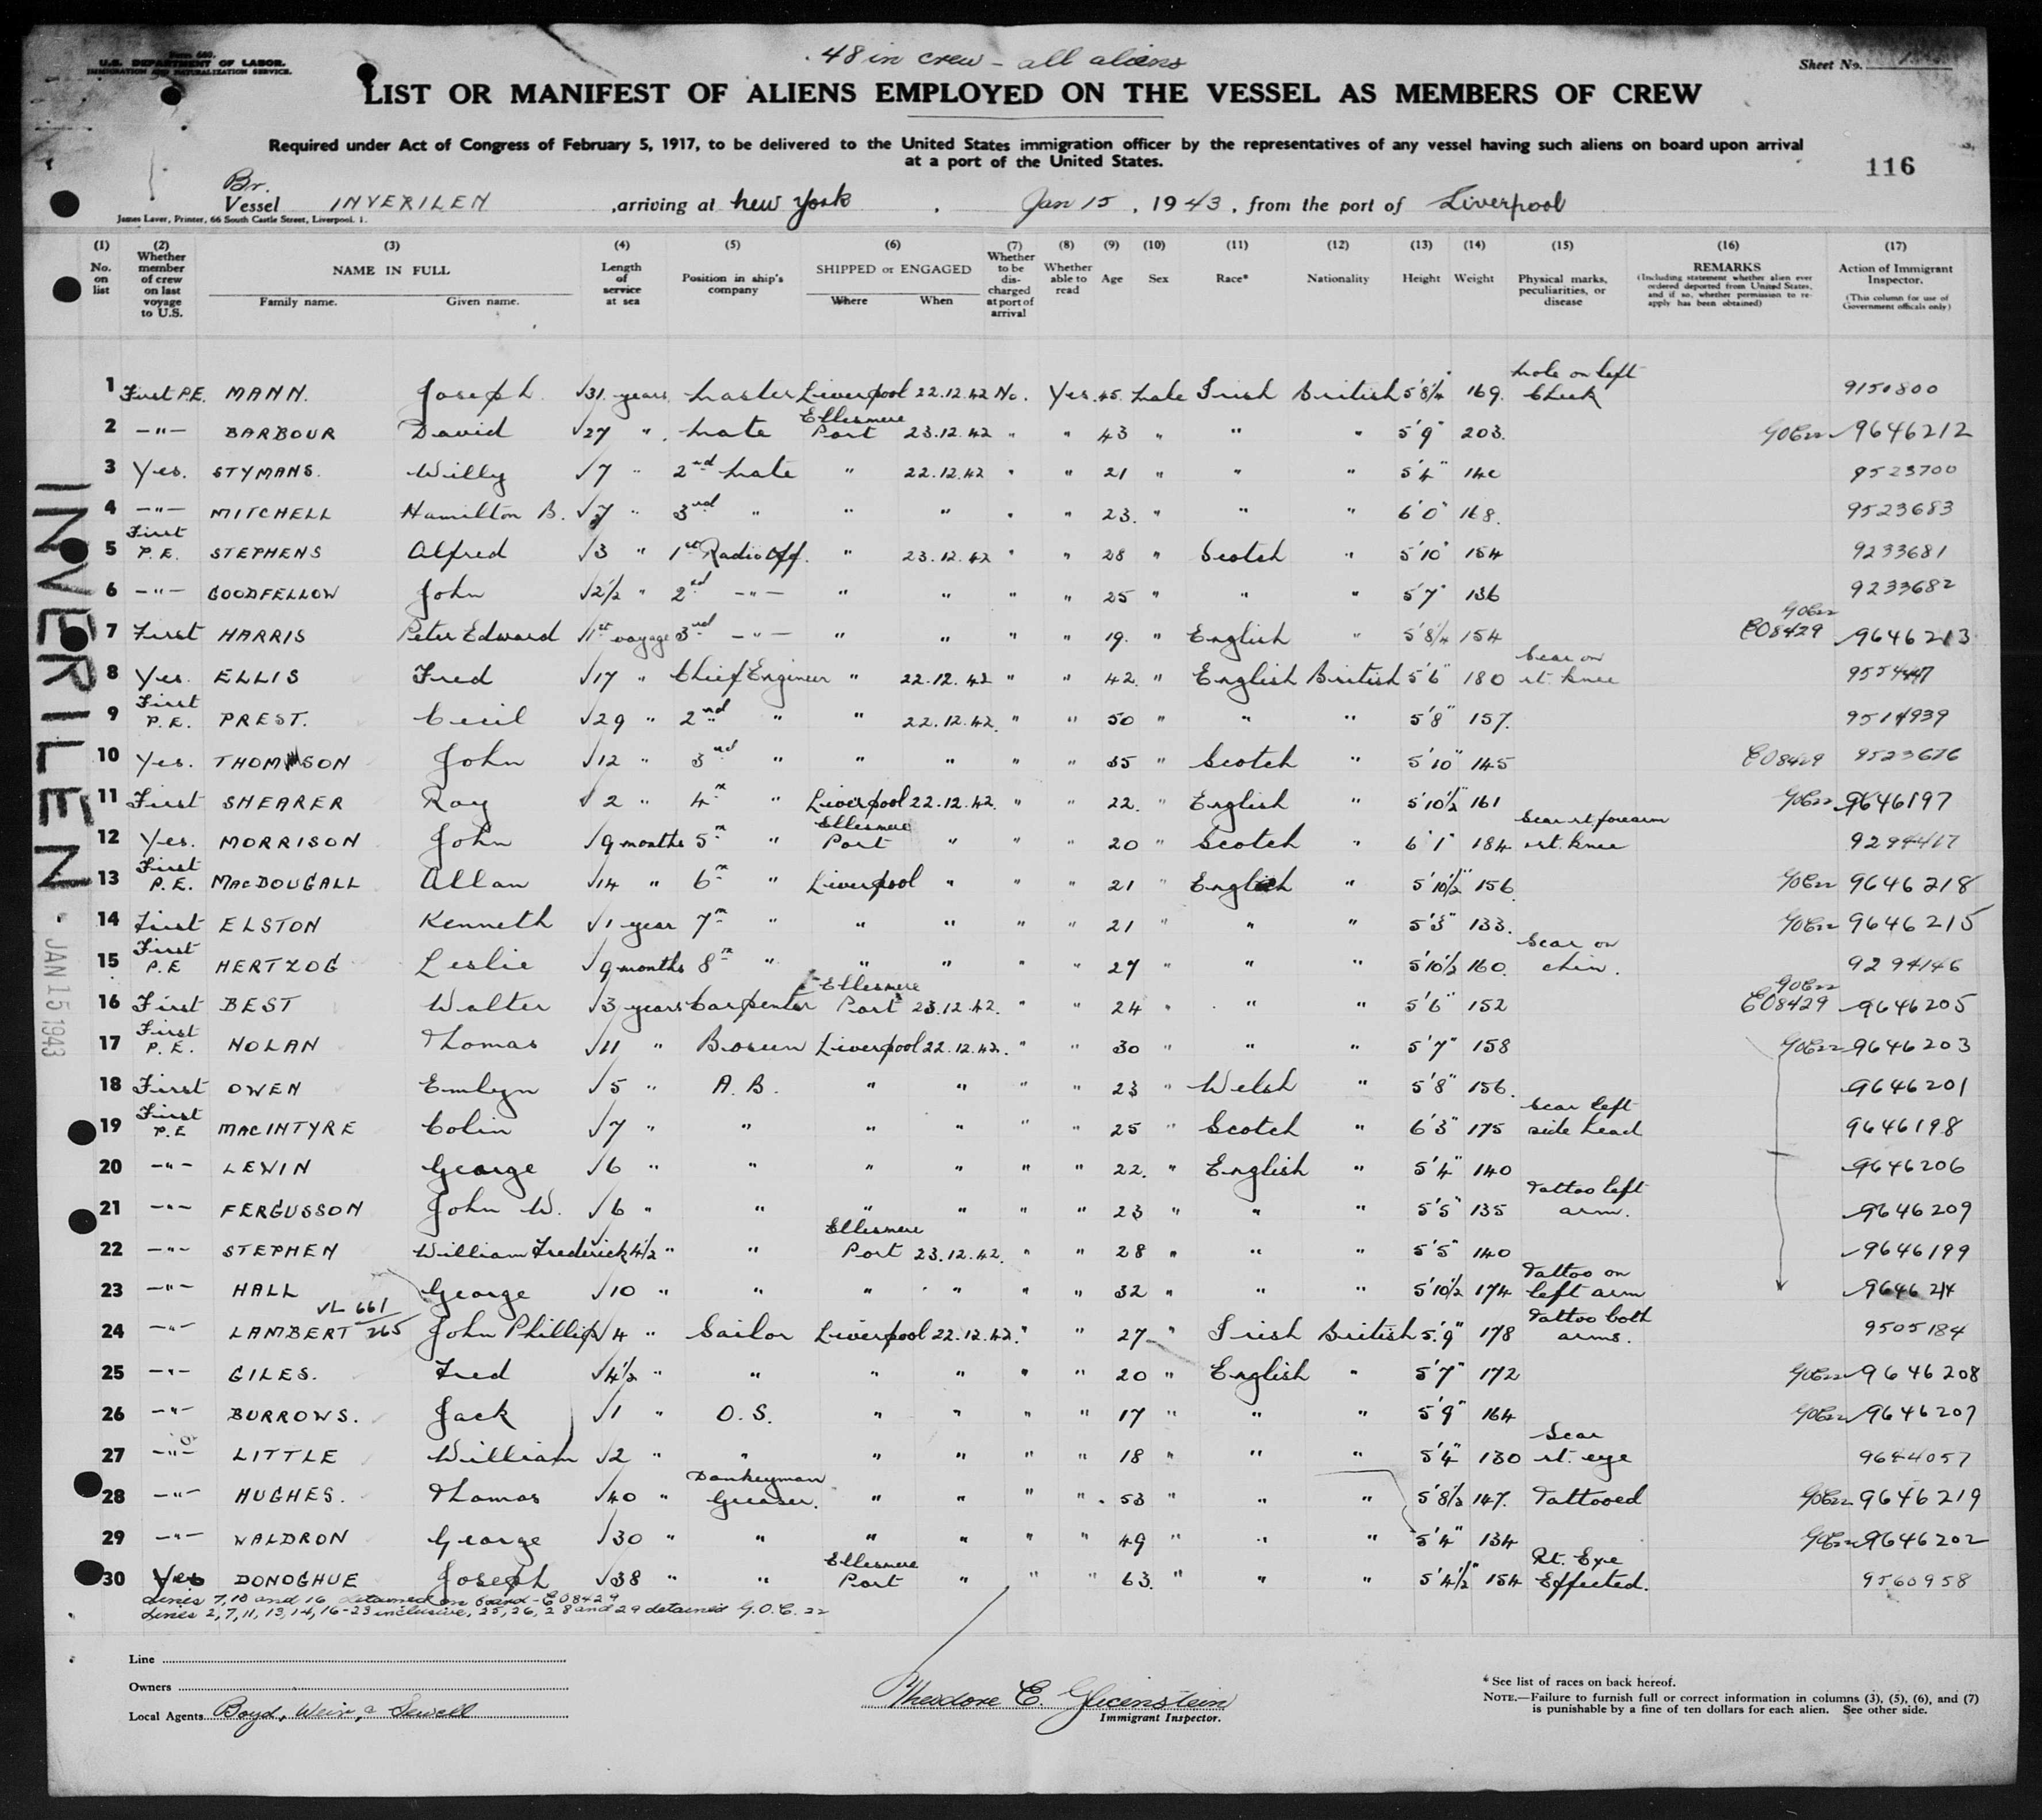 Form 680.
U.S. DEPARTMENT OF LABOR.
IMMIGRATION AND NATURALIZATION SERVICE.
48 in crew - all aliens
Sheet No. 1
LIST OR MANIFEST OF ALIENS EMPLOYED ON THE VESSEL AS MEMBERS OF CREW
Required under Act of Congress of February 5, 1917, to be delivered to the United States immigration officer by the representatives of any vessel having such aliens on board upon arrival
at a port of the United States.
116
Br.
Vessel INVERILEN , arriving at New York , Jan 15 , 1943 , from the port of Liverpool
James Laver, Printer, 66 South Castle Street, Liverpool. 1.
(1) No. on list (2) Whether member of crew on last voyage to U.S. (3) NAME IN FULL Family name. Given name. (4) Length of service at sea (5) Position in ship's company (6) SHIPPED or ENGAGED Where When (7) Whether to be discharged at port of arrival (8) Whether able to read (9) Age (10) Sex (11) Race* (12) Nationality (13) Height (14) Weight (15) Physical marks, peculiarities, or disease (16) REMARKS (Including statement whether alien ever ordered deported from United States, and if so, whether permission to re-apply has been obtained) (17) Action of Immigrant Inspector. (This column for use of Government officials only)
1 First P.E. MANN. Joseph √31 years Master Liverpool 22.12.42 No. Yes. 45. Male Irish British 5'8¼ 169. Mole on left Cheek 9150800
2 -"- BARBOUR David √27 " Mate Ellesmere Port 23.12.42 " " 43 " " " 5'9" 203. 9646212
3 Yes. STYMANS. Willy √7 " 2nd Mate " 22.12.42 " " 21 " " " 5'4" 140 9523700
4 -"- MITCHELL Hamilton B. √7 " 3rd " " " " " 23. " " " 6'0" 168. 9523683
5 First P.E. STEPHENS Alfred √3 " 1st Radio Off. " 23.12.42 " " 28 " Scotch " 5'10" 154 9233681
6 -"- GOODFELLOW John √2½ " 2nd -"- " " " " 25 " " " 5'7" 136 9233682
7 First HARRIS Peter Edward √1st voyage 3rd -"- " " " " 19. " English " 5'8¼ 154 EO8429 9646213
8 Yes. ELLIS Fred √17 " Chief Engineer " 22.12.42 " " 42. " English British 5'6" 180 Scar on rt. knee 9554447
9 First P.E. PREST. Cecil √29 " 2nd " " 22.12.42. " " 50 " " " 5'8" 157. 9514939
10 Yes. THOMSON John √12 " 3rd " " " " " 35 " Scotch " 5'10" 145 EO8429 9523676
11 First SHEARER Roy √2 " 4th " Liverpool 22.12.42. " " 22. " English " 5'10½" 161 9646197
12 Yes. MORRISON John √9 months 5th " Ellesmere Port " " " 20 " Scotch " 6'1" 184 Scar rt. forearm rt. knee 9294417
13 First P.E. MacDOUGALL Allan √14 " 6th " Liverpool " " " 21 " English " 5'10½" 156 9646218
14 First ELSTON Kenneth √1 year 7th " " " " " 21 " " " 5'3" 133. 9646215
15 First P.E HERTZOG Leslie √9 months 8th " " " " " 27 " " " 5'10½ 160. Scar on chin. 9294146
16 First BEST Walter √3 years Carpenter Ellesmere Port 23.12.42. " " 24 " " " 5'6" 152 EO8429 9646205
17 First P.E. NOLAN Thomas √11 " Bosun Liverpool 22.12.42. " " 30 " " " 5'7" 158 9646203
18 First OWEN Emlyn √5 " A.B. " " " " 23 " Welsh " 5'8" 156. 9646201
19 First P.E MACINTYRE Colin √7 " " " " " " 25 " Scotch " 6'3" 175 Scar left side head 9646198
20 -"- LEWIN George √6 " " " " " " 22. " English " 5'4" 140 9646206
21 -"- FERGUSSON John W. √6 " " " " " " 23 " " " 5'5" 135 Tattoo left arm. 9646209
22 -"- STEPHEN William Frederick 4½ " " Ellesmere Port 23.12.42. " " 28 " " " 5'5" 140 9646199
23 -"- HALL George √10 " " " " " " 32 " " " 5'10½ 174 Tattoo on left arm 9646214
24 -"- LAMBERT VL 661/265 John Phillip √4 " Sailor Liverpool 22.12.42. " " 27 " Irish British 5'.9" 178 Tattoo both arms. 9505184
25 -"- GILES. Fred √4½ " " " " " " 20 " English " 5'7" 172 9646208
26 -"- BURROWS. Jack √1 " O.S. " " " " 17 " " " 5'9" 164 9646207
27 -"- LITTLE William √2 " " " " " " 18 " " " 5'4" 130 Scar rt. eye 9644057
28 -"- HUGHES. Thomas √40 " Donkeyman Greaser. " " " " 53 " " " 5'8½ 147. Tattooed 9646219
29 -"- WALDRON George √30 " " " " " " 49 " " " 5'4" 134 9646202
30 Yes DONOGHUE Joseph √38 " " Ellesmere Port " " " 63. " " " 5'4½" 154 Rt. Eye Effected. 9560958
Lines 7, 10 and 16 detained on board - EO8429
Lines 2, 7, 11, 13, 14, 16-23 inclusive, 25, 26, 28 and 29 detained G.O.C. 22
INVERILEN - JAN 15 1943
Line
Owners
Local Agents Boyd, Weir, & Sewell
Theodore C. Glicenstein
Immigrant Inspector.
* See list of races on back hereof.
NOTE.—Failure to furnish full or correct information in columns (3), (5), (6), and (7)
is punishable by a fine of ten dollars for each alien. See other side.